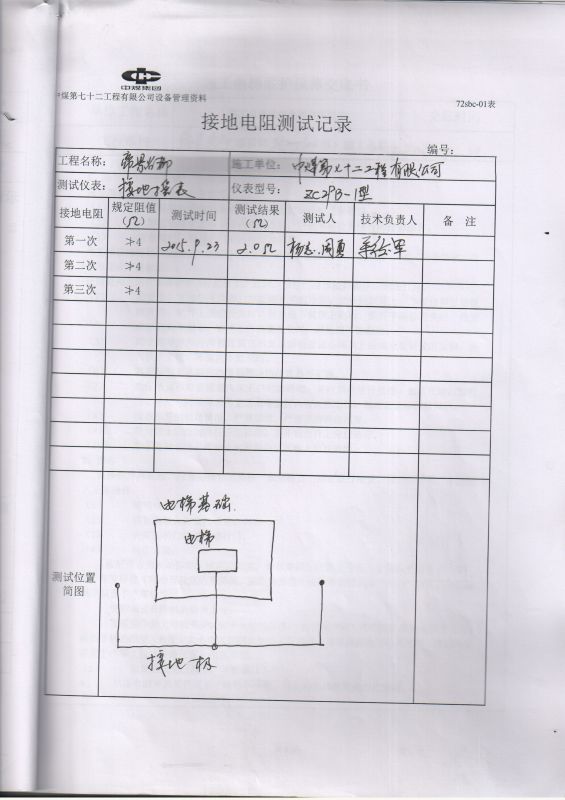 中煤集团
中煤第七十二工程有限公司设备管理资料
72sbc-01表
接地电阻测试记录
编号：
工程名称： 施工单位： 中煤第七十二工程有限公司
测试仪表： 接地摇表 仪表型号： ZC29B-1型
接地电阻 规定阻值（Ω） 测试时间 测试结果（Ω） 测试人 技术负责人 备 注
第一次 ≯4 2015.9.23 2.0Ω 杨志、周勇
第二次 ≯4
第三次 ≯4
测试位置简图
电梯基础
电梯
接地极